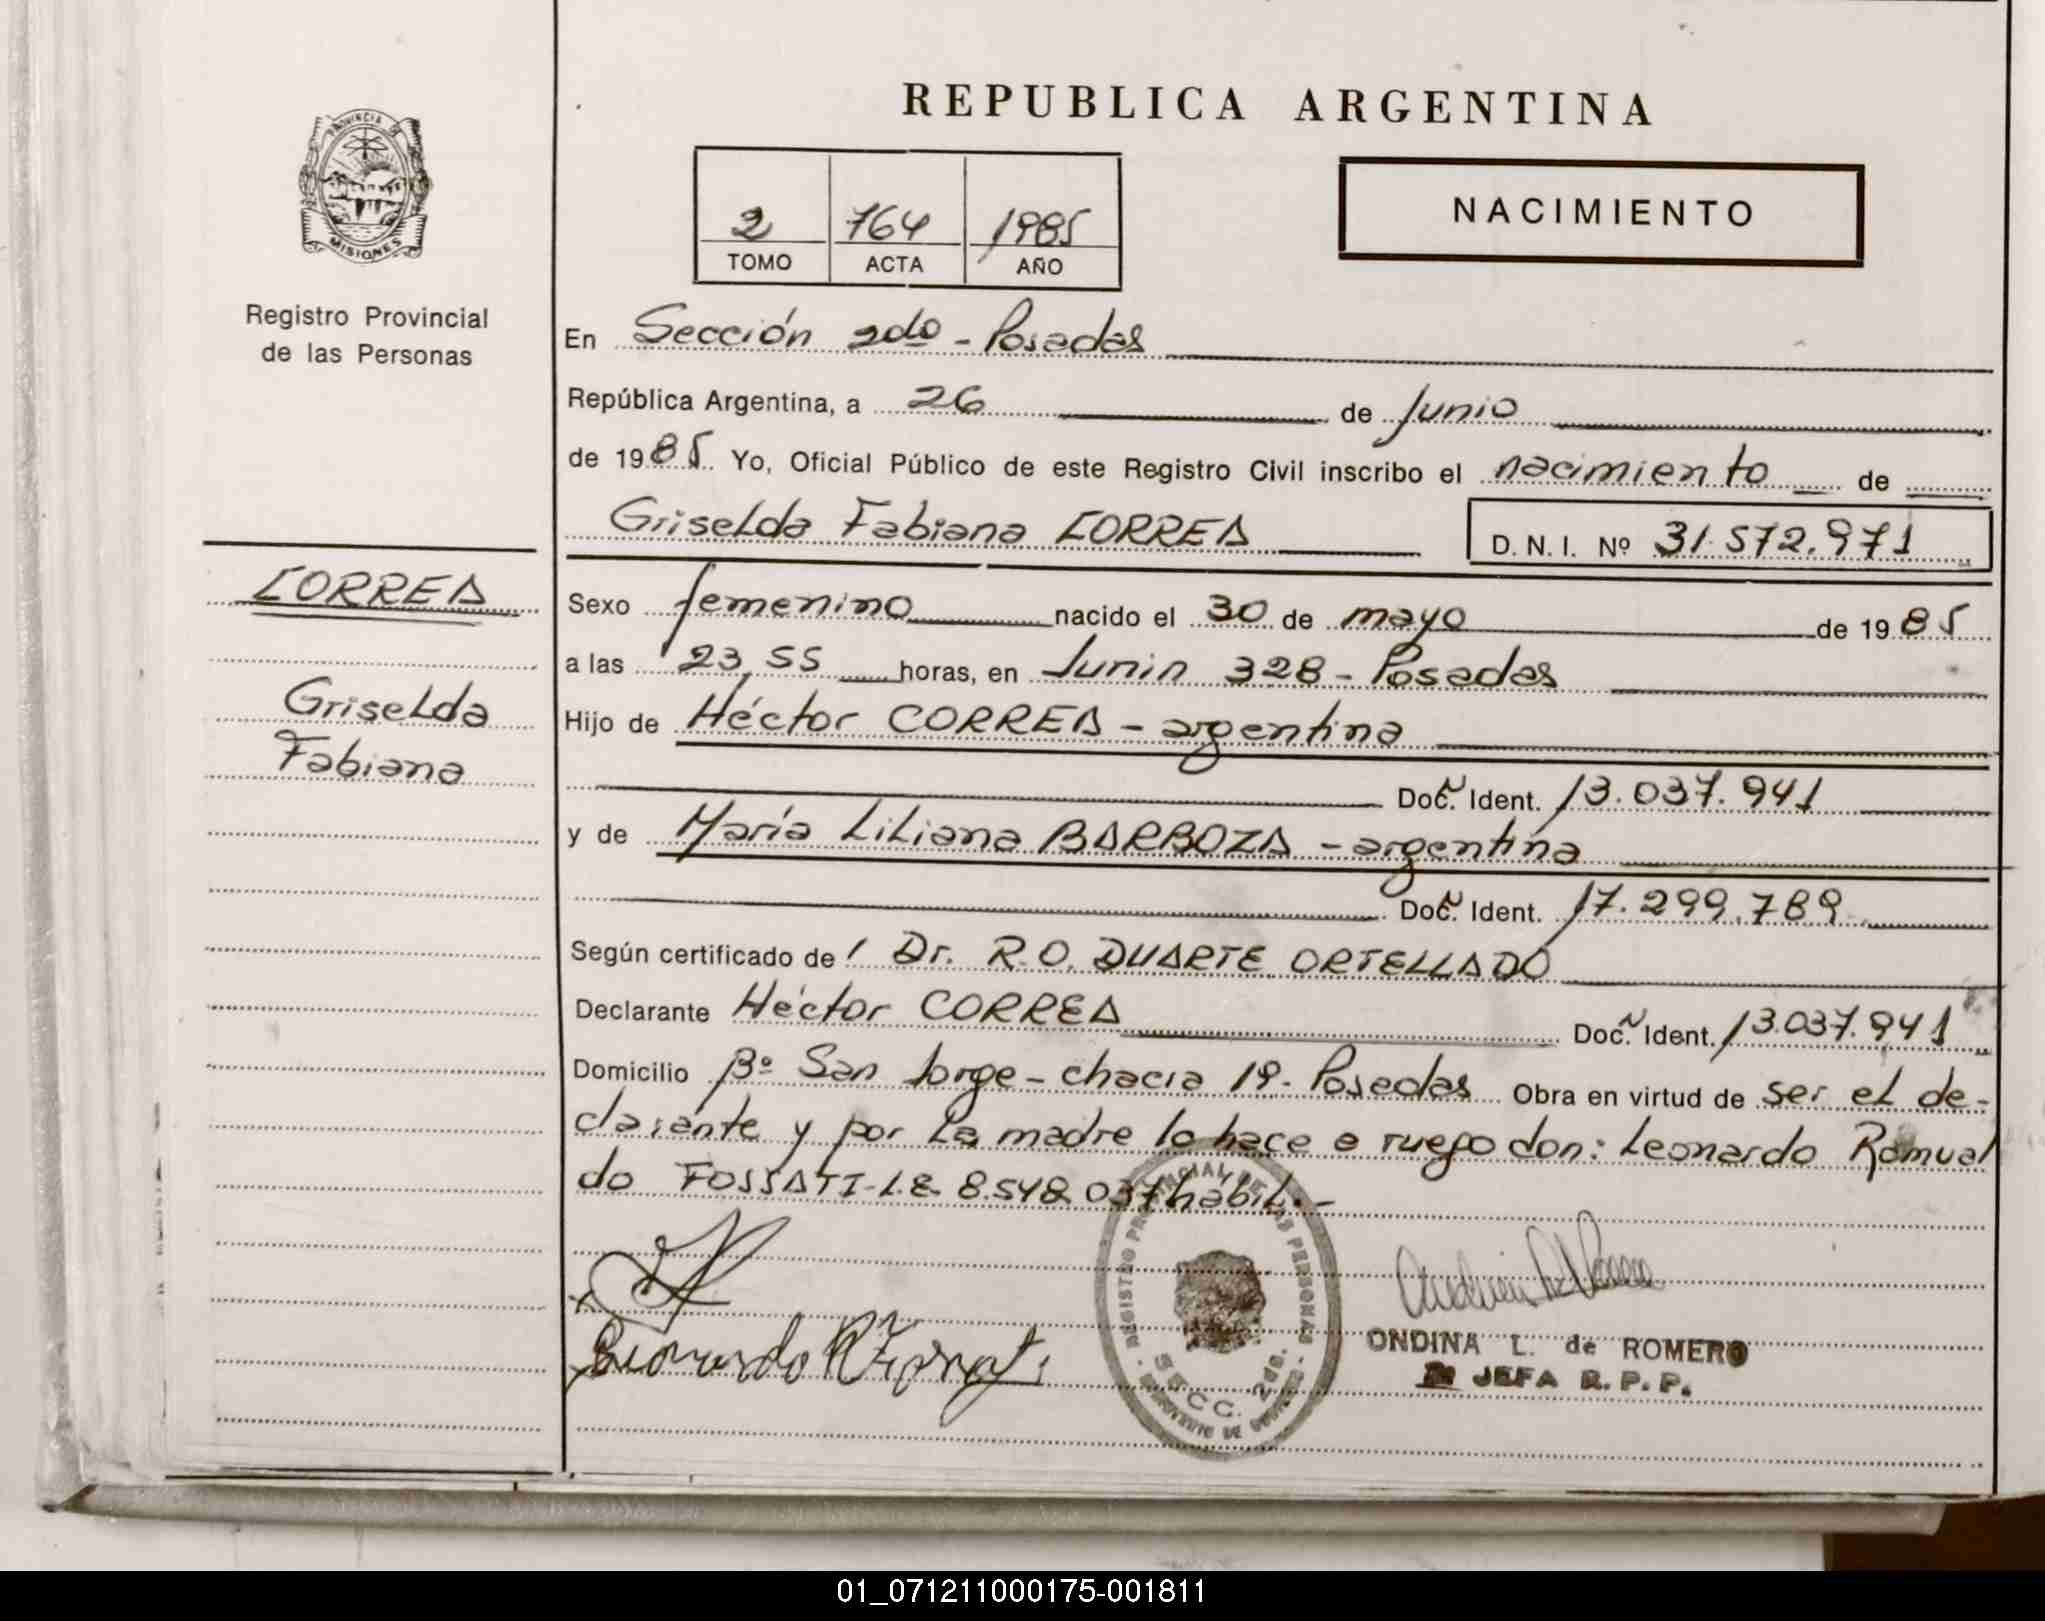 REPUBLICA ARGENTINA
PROVINCIA DE
MISIONES
Registro Provincial
de las Personas
2 764 1985
TOMO ACTA AÑO
NACIMIENTO
En Sección 2do - Posadas
República Argentina, a 26 de Junio
de 1985 Yo, Oficial Público de este Registro Civil inscribo el nacimiento de
Griselda Fabiana CORREA D. N. I. Nº 31.572.971
CORREA
Griselda
Fabiana
Sexo femenino nacido el 30 de mayo de 1985
a las 23,55 horas, en Junin 328 - Posadas
Hijo de Héctor CORREA - argentina
Doc. Ident. 13.037.941
y de María Liliana BARBOZA - argentina
Doc. Ident. 17.299.789
Según certificado de / Dr. R.O. DUARTE ORTELLADO
Declarante Héctor CORREA Doc. Ident. 13.037.941
Domicilio Bº San Jorge - chacra 19 - Posadas Obra en virtud de ser el de-
clarante y por la madre lo hace a ruego don: Leonardo Romual
do FOSSATI - L.E. 8.548.037 habil. -
REGISTRO PROVINCIAL DE LAS PERSONAS
SECC. 2da.
ONDINA L. de ROMERO
JEFA R. P. P.
01_071211000175-001811